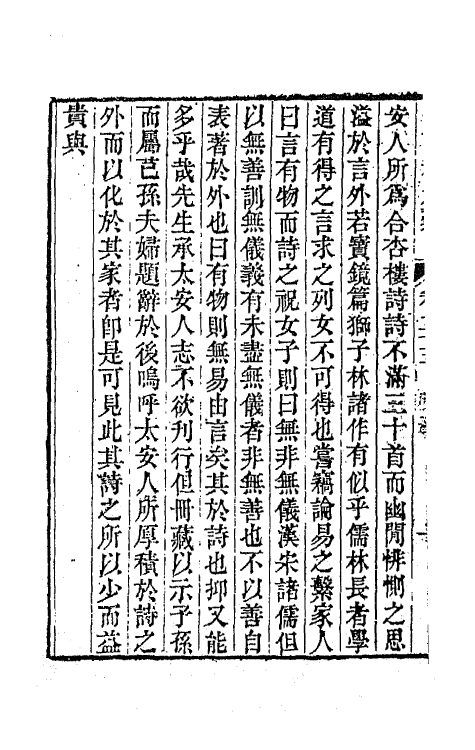 安人所爲合杏樓詩詩不滿三十首而幽閒悱惻之思
溢於言外若寶鏡篇獅子林諸作有似乎儒林長者學
道有得之言求之列女不可得也嘗竊論易之繫家人
曰言有物而詩之祝女子則曰無非無儀漢宋諸儒但
以無善訓無儀義有未盡無儀者非無善也不以善自
表著於外也曰有物則無易由言矣其於詩也抑又能
多乎哉先生承太安人志不欲刊行但冊藏以示子孫
而屬芑孫夫婦題辭於後嗚呼太安人所厚積於詩之
外而以化於其家者卽是可見此其詩之所以少而益
貴與